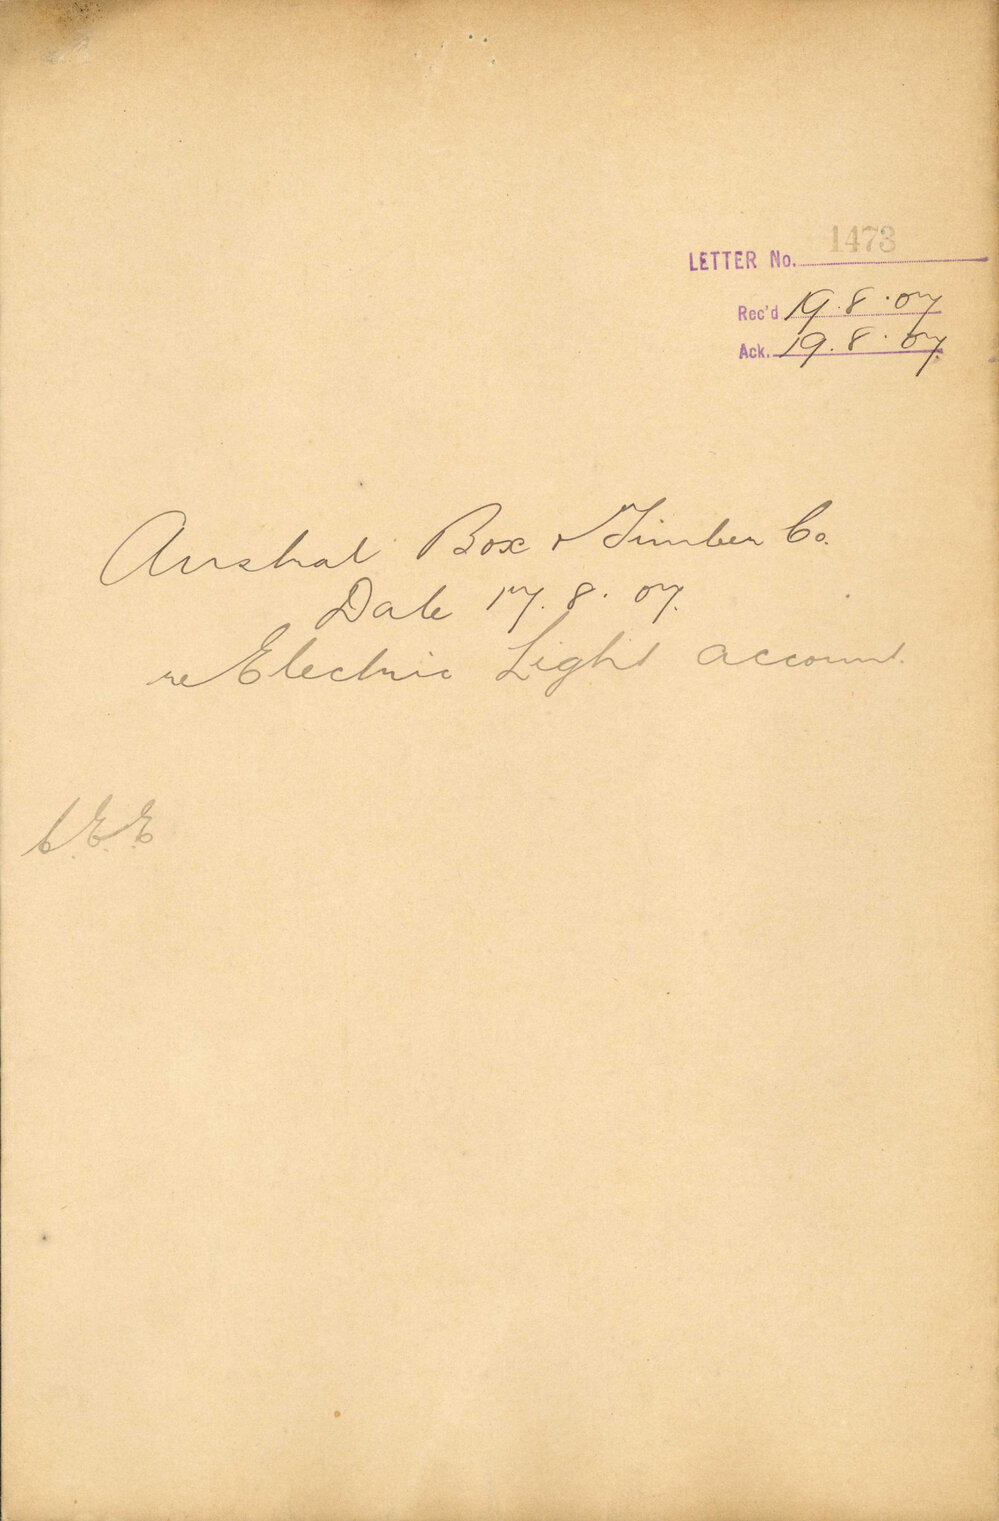 LETTER No. 1473
Rec'd 19.8.07
Ack. 19.8.07
Austral Box & Timber Co.
Date 17.8.07.
re Electric Light account.
C.E.E